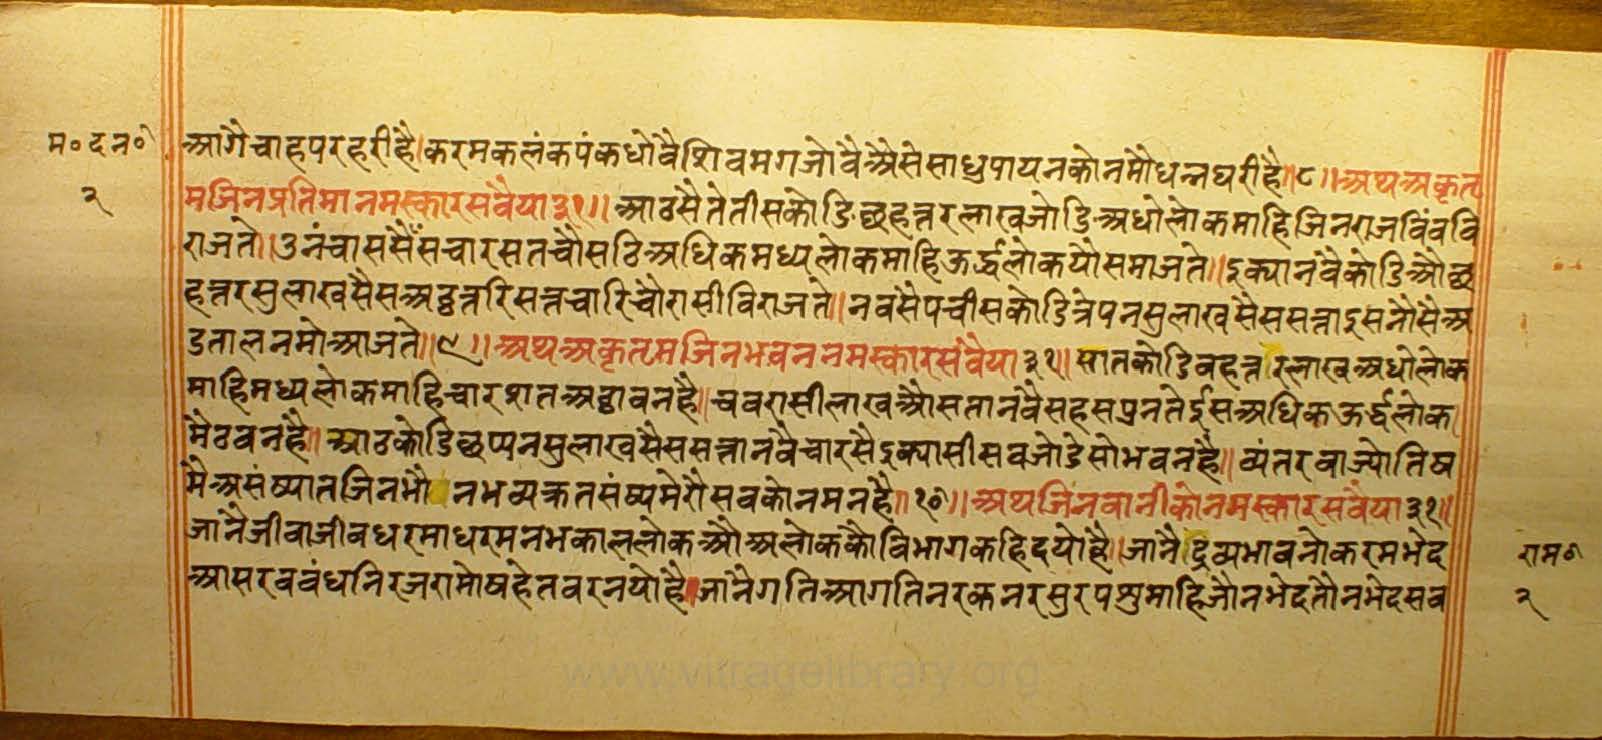 म॰ द न॰
२
आगैचाहपरहरीहै।करमकलंकपंकधोवैशिवमगजोवैअैसेसाधुपायनकोनमौधन्नघरीहै॥८॥अथअकृत्य
मजिनप्रतिमानमस्कारसवैया३१॥आठसैतेतीसकोडिछहत्तरलाखजोडिअधोलोकमाहिजिनराजविंबवि
राजते।उनंचाससैंसचारसतचौसठिअधिकमध्यलोकमांहिऊर्द्धलोकयौसमाजते॥इक्यानंवैकोडिऔछ
हत्तरसुलाखसैसअठ्ठत्तरिसत्तचारिचौरासीविराजते॥नवसैपचीसकोडित्रेपनसुलाखसैससत्ताइसनौसैअ
डतालनमोआजते॥९॥अथअकृत्यमजिनभवननमस्कारसंवैया३१॥सातकोडिबहत्तरलाखअधोलोक
माहिमध्यलोकमाहिचारशतअठ्ठावनहै॥चवरासीलाखऔसतानंवैसहसप्रनतेईसअधिकऊर्द्धलोक
मेठवनंहै॥आठकोडिछप्पनसुलाखसैससत्तानवैचारसैइक्यासीसवजोडेसोभवनहै॥व्यंतरवाज्योतिष
मैअसंष्यातजिनभौ नभव्यकतसंष्यमेगैसवकोनमनहै॥१०॥अथजिनवानीकोनमस्कारसवैया३१॥
जानैजीवाजीवधरमाधरमनभकाललोकऔअलोककौविभागकहिदयोहै॥जानैदिव्यभावनोकरमभेद
आसरवबंधनिरजरामोषहेतवरनयोहै॥जानैगतिआगतिनरकनरसुरपशुमाहिजौनभेदतौनभेदसव
राम॰
२
www.vitragelibrary.org